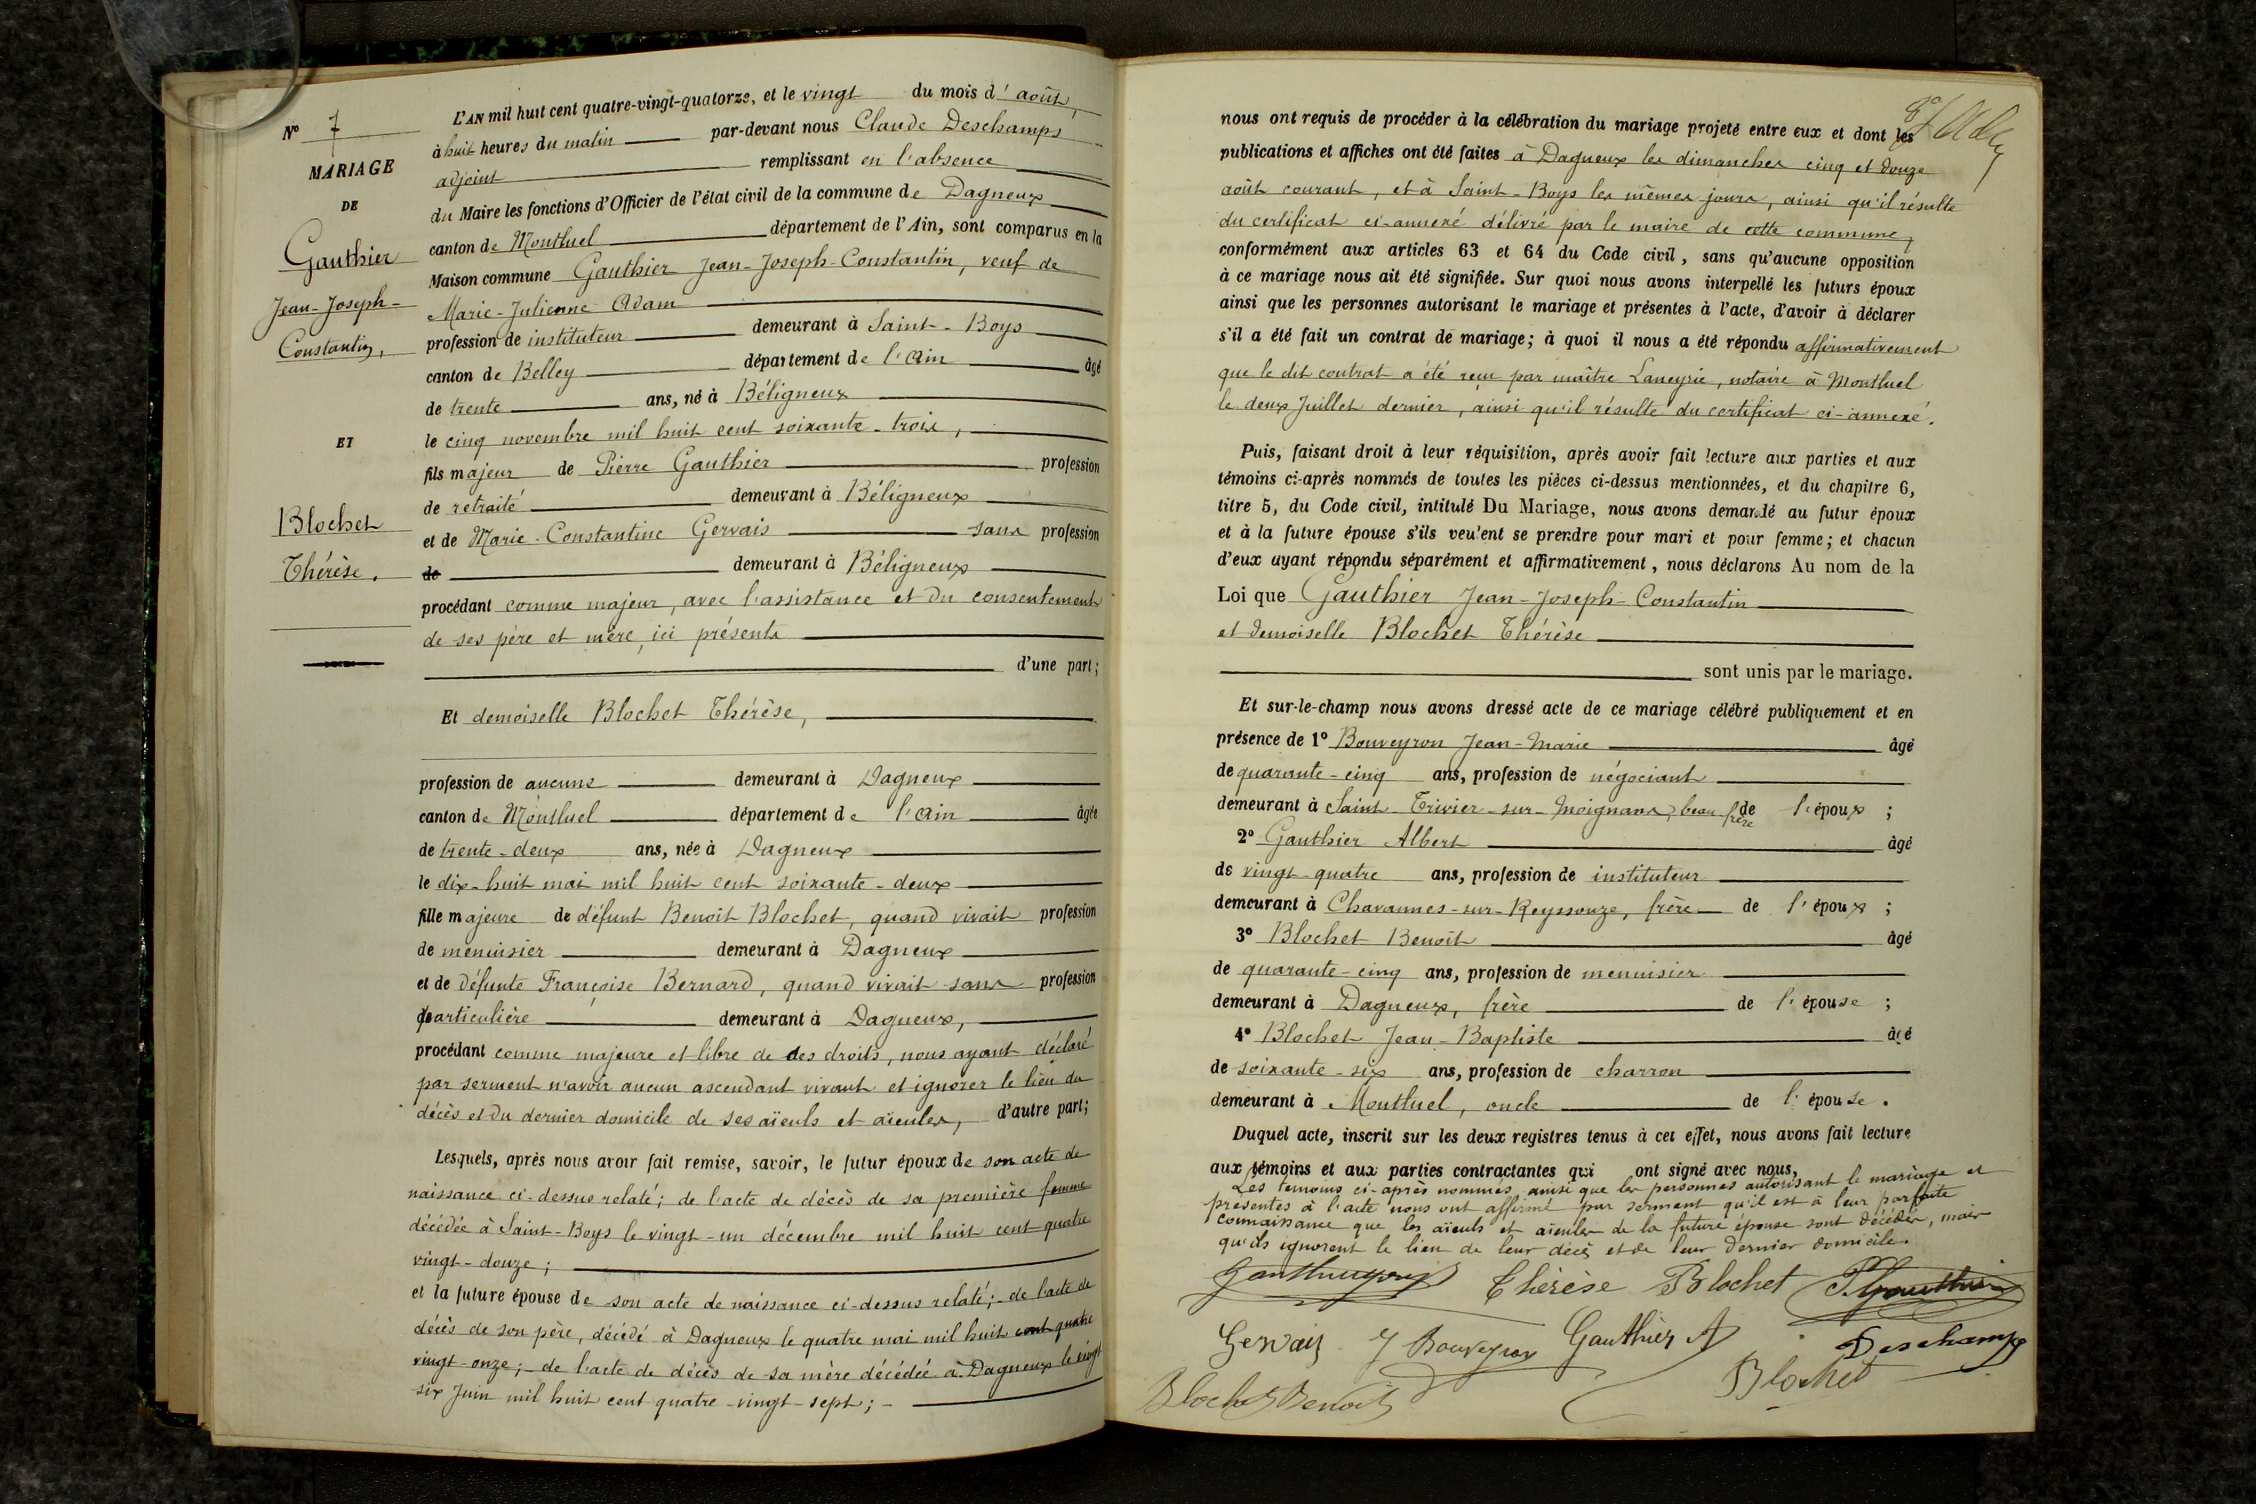 N° 7
MARIAGE
DE
Gauthier
Jean-Joseph-
Constantin,
ET
Blochet
Thérèse.
L'AN mil huit cent quatre-vingt-quatorze, et le vingt du mois d'août,
à huit heures du matin par-devant nous Claude Deschamps
adjoint remplissant en l'absence
du Maire les fonctions d'Officier de l'état civil de la commune de Dagneux
canton de Montluel département de l'Ain, sont comparus en la
Maison commune Gauthier Jean-Joseph-Constantin, veuf de
Marie-Julienne Adam
profession de instituteur demeurant à Saint-Boys
canton de Belley département de l'Ain âgé
de trente ans, né à Béligneux
le cinq novembre mil huit cent soixante-trois,
fils majeur de Pierre Gauthier profession
de retraité demeurant à Béligneux
et de Marie-Constantine Gervais sans profession
de demeurant à Béligneux
procédant comme majeur, avec l'assistance et du consentement
de ses père et mère, ici présents
d'une part;
Et demoiselle Blochet Thérèse,
profession de aucune demeurant à Dagneux
canton de Montluel département de l'Ain âgée
de trente-deux ans, née à Dagneux
le dix-huit mai mil huit cent soixante-deux
fille majeure de défunt Benoit Blochet, quand vivait profession
de menuisier demeurant à Dagneux
et de défunte Françoise Bernard, quand vivait sans profession
particulière demeurant à Dagneux,
procédant comme majeure et libre de des droits, nous ayant déclaré
par serment n'avoir aucun ascendant vivant et ignorer le lieu du
décès et du dernier domicile de ses aïeuls et aïeules, d'autre part;
Lesquels, après nous avoir fait remise, savoir, le futur époux de son acte de
naissance ci-dessus relaté; de l'acte de décès de sa première femme
décédée à Saint-Boys le vingt-un décembre mil huit cent quatre
vingt-douze;
et la future épouse de son acte de naissance ci-dessus relaté; de l'acte de
décès de son père, décédé à Dagneux le quatre mai mil huit cent quatre
vingt-onze; de l'acte de décès de sa mère décédée à Dagneux le vingt
six Juin mil huit cent quatre-vingt-sept;
nous ont requis de procéder à la célébration du mariage projeté entre eux et dont les
publications et affiches ont été faites à Dagneux les dimanches cinq et douze
août courant, et à Saint-Boys les mêmes jours, ainsi qu'il résulte
du certificat ci-annexé délivré par le maire de cette commune,
conformément aux articles 63 et 64 du Code civil, sans qu'aucune opposition
à ce mariage nous ait été signifiée. Sur quoi nous avons interpellé les futurs époux
ainsi que les personnes autorisant le mariage et présentes à l'acte, d'avoir à déclarer
s'il a été fait un contrat de mariage; à quoi il nous a été répondu affirmativement
que le dit contrat a été reçu par maître Laneyrie, notaire à Montluel
le deux Juillet dernier, ainsi qu'il résulte du certificat ci-annexé.
Puis, faisant droit à leur réquisition, après avoir fait lecture aux parties et aux
témoins ci-après nommés de toutes les pièces ci-dessus mentionnées, et du chapitre 6,
titre 5, du Code civil, intitulé Du Mariage, nous avons demandé au futur époux
et à la future épouse s'ils veulent se prendre pour mari et pour femme; et chacun
d'eux ayant répondu séparément et affirmativement, nous déclarons Au nom de la
Loi que Gauthier Jean-Joseph-Constantin
et demoiselle Blochet Thérèse
sont unis par le mariage.
Et sur-le-champ nous avons dressé acte de ce mariage célébré publiquement et en
présence de 1° Bouveyron Jean-Marie âgé
de quarante-cinq ans, profession de négociant
demeurant à Saint-Trivier-sur-Moignans, beau-frère de l'époux;
2° Gauthier Albert âgé
de vingt-quatre ans, profession de instituteur
demeurant à Chavannes-sur-Reyssouze, frère de l'époux;
3° Blochet Benoit âgé
de quarante-cinq ans, profession de menuisier
demeurant à Dagneux, frère de l'épouse;
4° Blochet Jean-Baptiste âgé
de soixante-six ans, profession de charron
demeurant à Montluel, oncle de l'épouse.
Duquel acte, inscrit sur les deux registres tenus à cet effet, nous avons fait lecture
aux témoins et aux parties contractantes qui ont signé avec nous,
Les témoins ci-après nommés ainsi que les personnes autorisant le mariage et
présentes à l'acte nous ont affirmé par serment qu'il est à leur parfaite
connaissance que les aïeuls et aïeules de la future épouse sont décédés, mais
qu'ils ignorent le lieu de leur décès et de leur dernier domicile.
Thérèse Blochet P. Gauthier
Gervais J Bouveyron Gauthier A Deschamps
Blochet Benoit Blochet